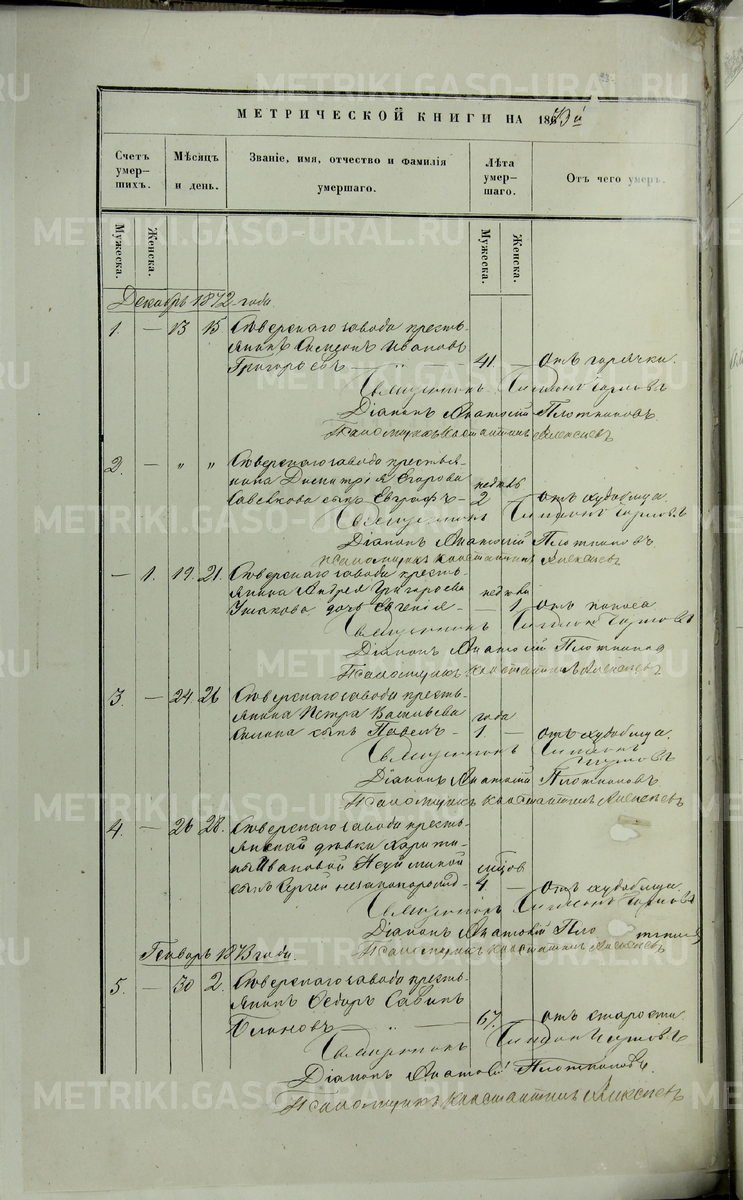 МЕТРИЧЕСКОЙ КНИГИ НА 1873й
Счетъ умер-шихъ.
Мѣсяцъ и день.
Званіе, имя, отчество и фамилія умершаго.
Лѣта умер-шаго.
Отъ чего умеръ.
Мужеска.
Женска.
Мужеска.
Женска.
Декабрь 1872 года
1. — 13 15 Сѣверскаго завода кресть-
янинъ Симеонъ Ивановъ
Григорьевъ — „ — 41. — отъ горячки.
Священникъ Симеонъ
Діаконъ Анатолій Плотниковъ
Псаломщикъ Константинъ Алексѣевъ
2. — „ „ Сѣверскаго завода крестья-
нина Димитрія Егорова недѣль
сынъ Евграфъ — 2 — отъ худобища
Священникъ Симеонъ
Діаконъ Анатолій Плотниковъ
Псаломщикъ Константинъ Алексѣевъ
— 1. 19. 21. Сѣверскаго завода кресть-
янина Андрея Григорьева недѣли
Ушакова дочь Евгенія — — 1 отъ поноса
Священникъ Симеонъ
Діаконъ Анатолій Плотниковъ
Псаломщикъ Константинъ Алексѣевъ
3. — 24 26 Сѣверскаго завода кресть-
янина Петра Васильева года
сынъ Павелъ — 1 — отъ худобища.
Священникъ Симеонъ
Діаконъ Анатолій Плотниковъ
Псаломщикъ Константинъ Алексѣевъ
4. — 26 28. Сѣверскаго завода кресть-
янской дѣвки Харити-
ны Ивановой мѣсяцов
сынъ Сергей незаконорожд — 4 — отъ худобища
Священникъ Симеонъ
Діаконъ Анатолій Плотниковъ
Псаломщикъ Константинъ Алексѣевъ
Генварь 1873 года.
5. — 30 2. Сѣверскаго завода кресть-
янинъ Ѳедоръ Савинъ
Блиновъ — „ — 67. — отъ старости
Священникъ Симеонъ
Діаконъ Анатолій Плотниковъ.
Псаломщикъ Константинъ Алексѣевъ
METRIKI.GASO-URAL.RU